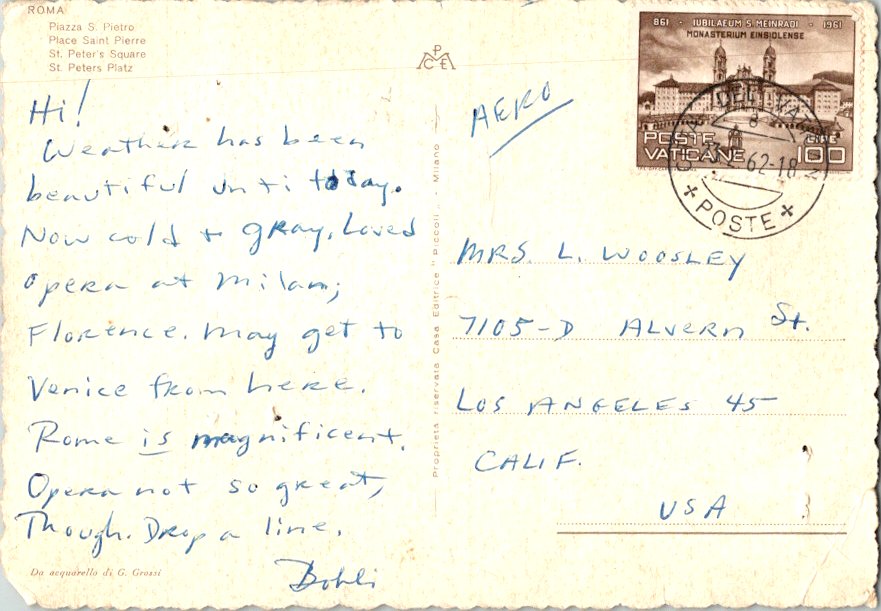 ROMA
Piazza S. Pietro
Place Saint Pierre
St. Peter's Square
St. Peters Platz
PCE
Hi!
Weather has been
beautiful until today.
Now cold + gray. Loved
opera at Milan;
Florence. May get to
Venice from here.
Rome is magnificent.
Opera not so great,
Though. Drop a line.
Da acquarello di G. Grossi
Proprietà riservata Casa Editrice "Piccoli" - Milano
AERO
861 · IUBILAEUM S. MEINRADI · 1961
MONASTERIUM EINSIDLENSE
POSTE
VATICANE
LIRE
100
POSTE
MRS. L. WOOSLEY
7105-D ALVERN St.
LOS ANGELES 45
CALIF.
USA